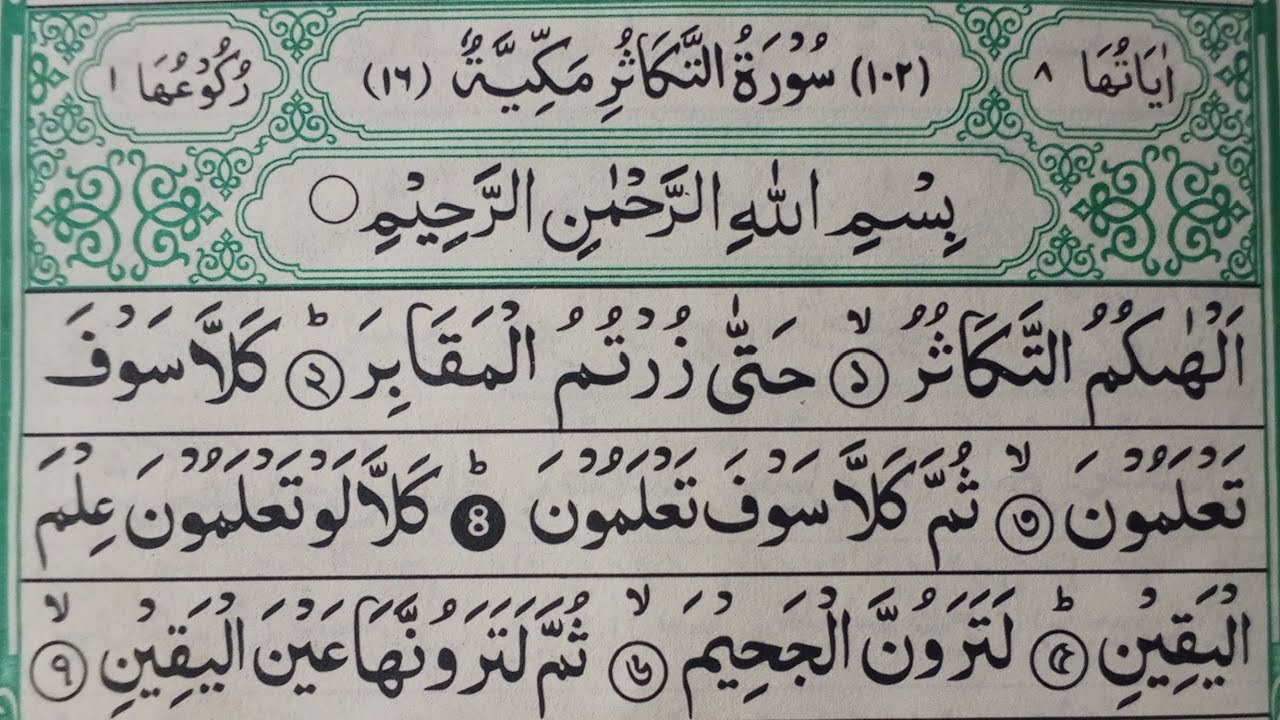 اٰيَاتُهَا ٨ (١٠٢) سُوْرَةُ التَّكَاثُرِ مَكِّيَّةٌ (١٦) رُكُوْعُهَا ١
بِسْمِ اللّٰهِ الرَّحْمٰنِ الرَّحِيْمِ ○
اَلْهٰىكُمُ التَّكَاثُرُ ۙ ١ حَتّٰى زُرْتُمُ الْمَقَابِرَ ؕ ٢ كَلَّا سَوْفَ
تَعْلَمُوْنَ ۙ ٣ ثُمَّ كَلَّا سَوْفَ تَعْلَمُوْنَ ؕ ٤ كَلَّا لَوْ تَعْلَمُوْنَ عِلْمَ
الْيَقِيْنِ ؕ ٥ لَتَرَوُنَّ الْجَحِيْمَ ۙ ٦ ثُمَّ لَتَرَوُنَّهَا عَيْنَ الْيَقِيْنِ ۙ ٧